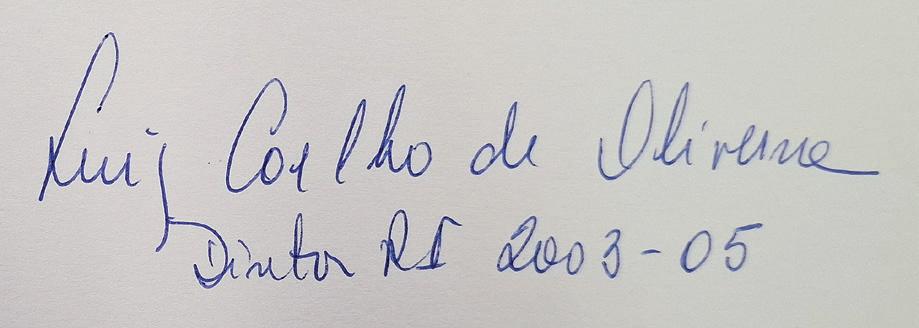 Luiz Coelho de Oliveira
Diretor RI 2003-05